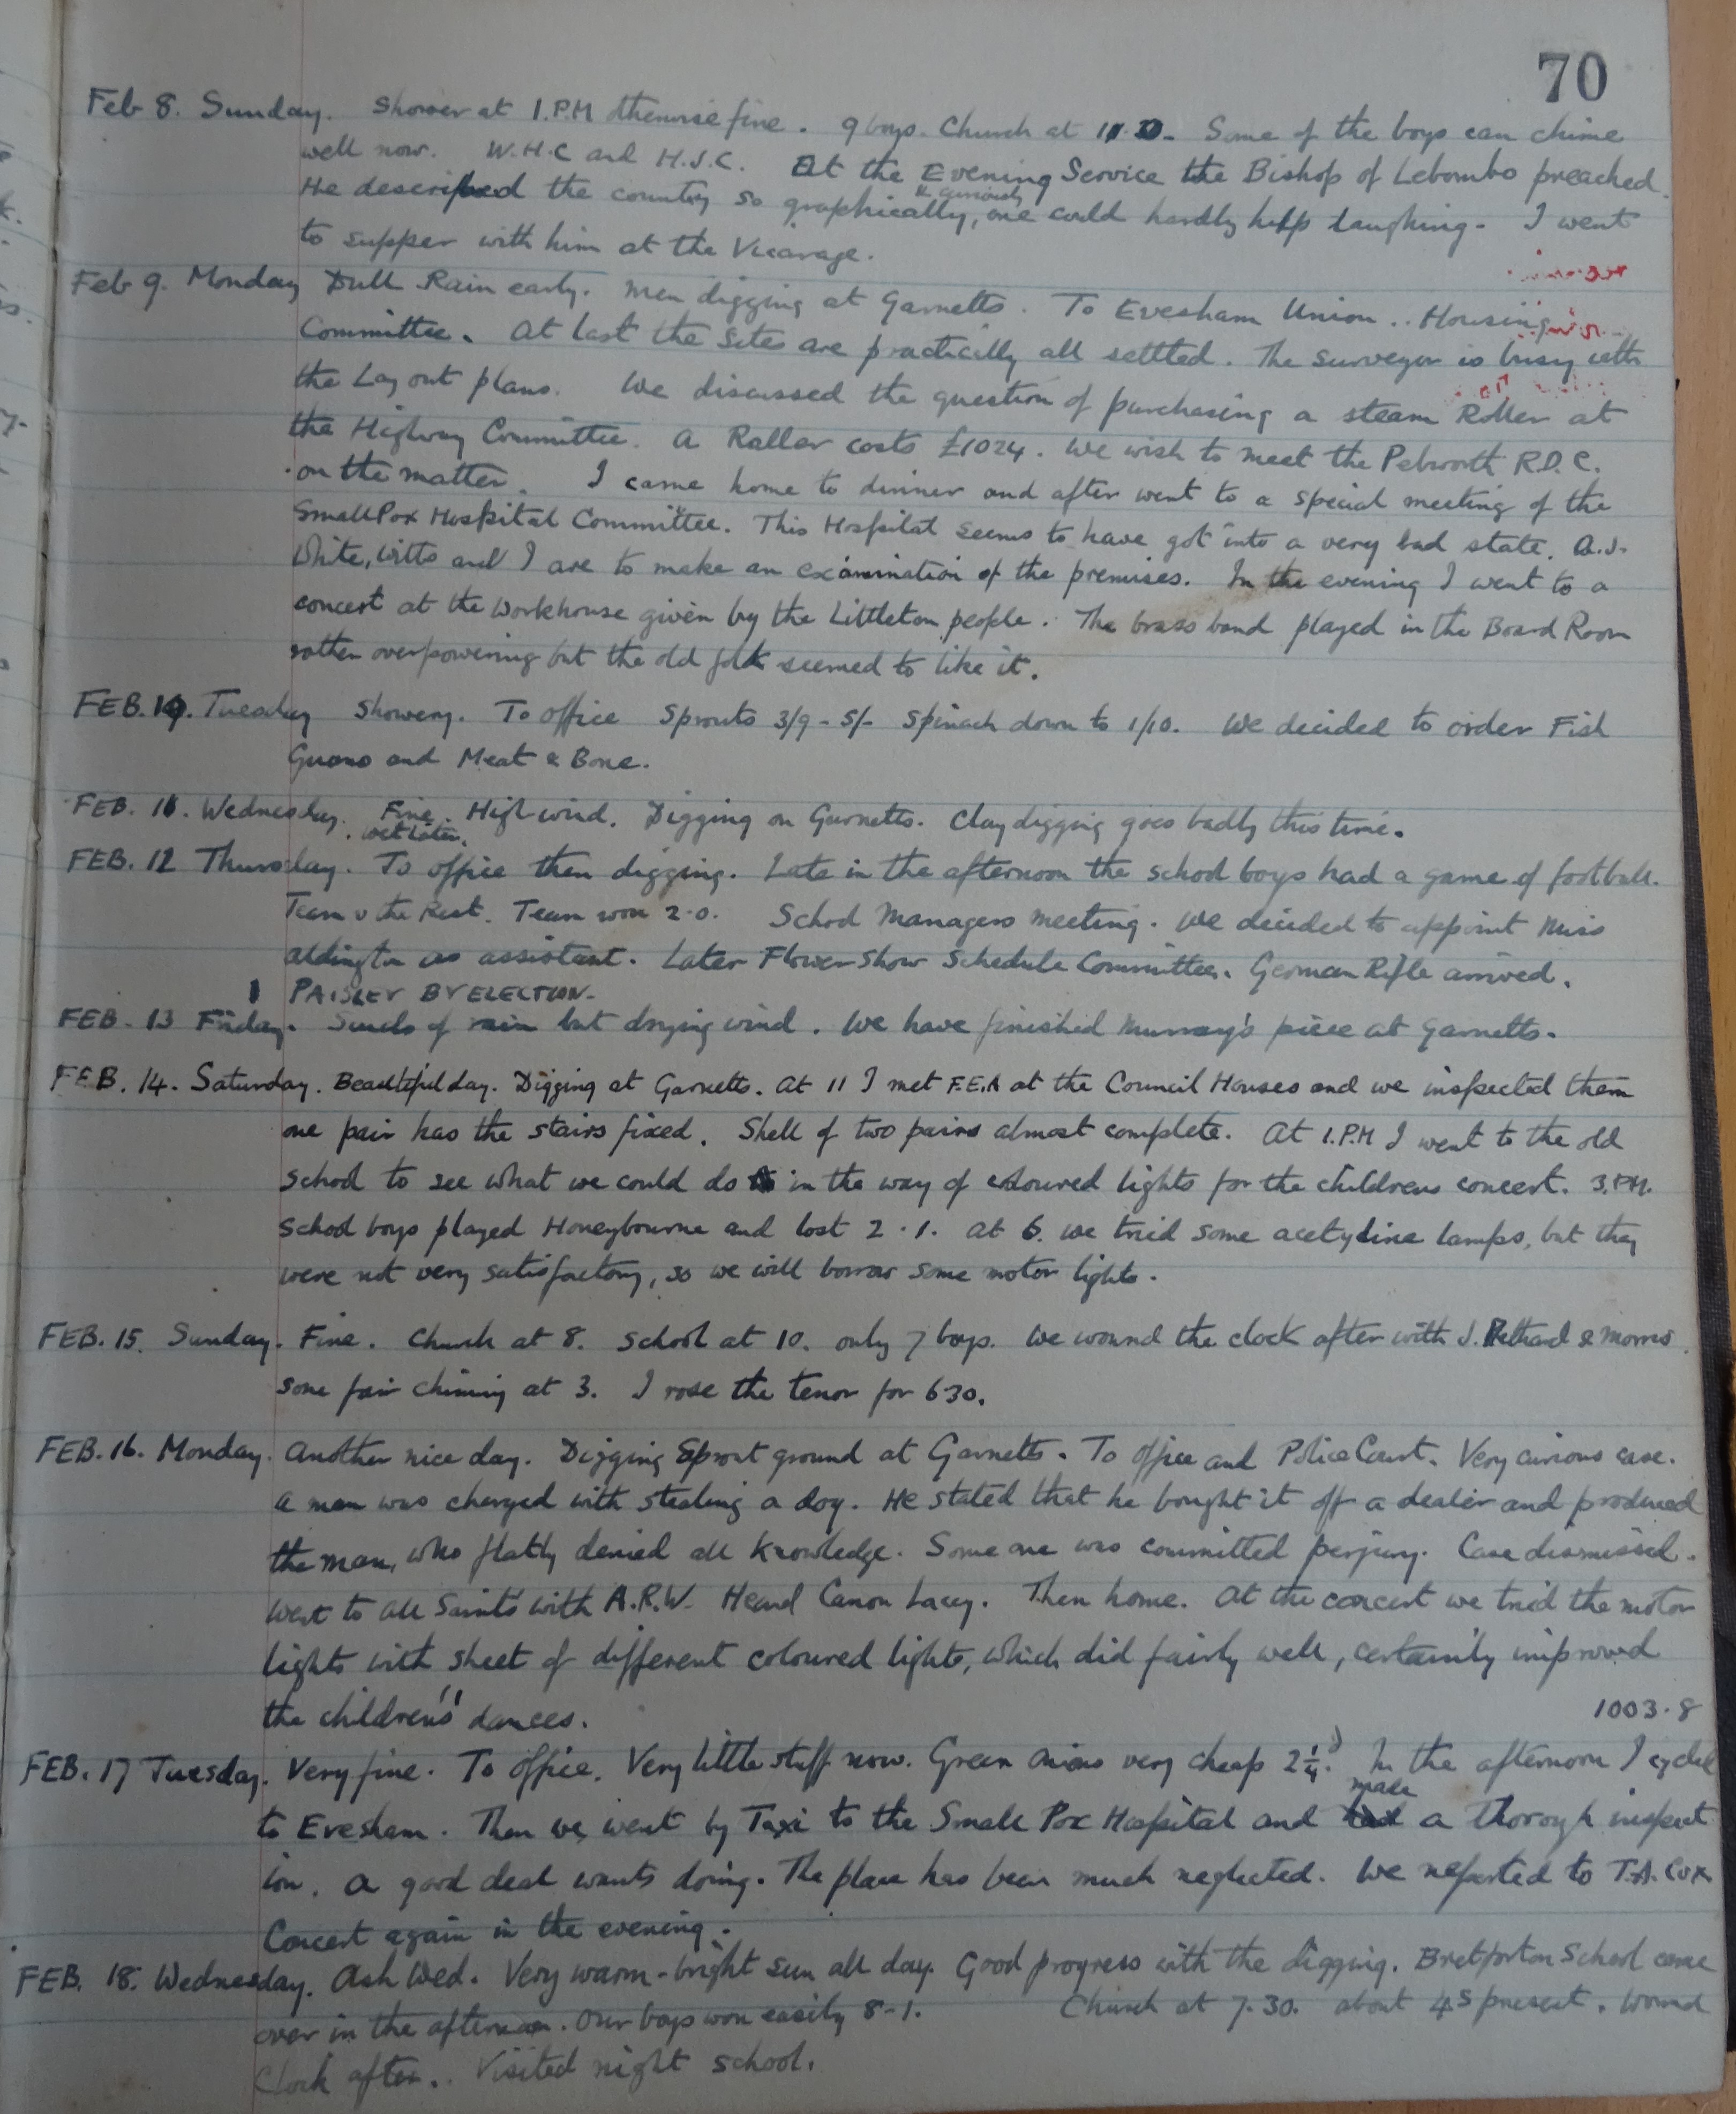 70
Feb 8. Sunday. Shower at 1.P.M otherwise fine. 9 boys. Church at 11. Some of the boys can chime
well now. W.H.C and H.J.C. At the Evening Service the Bishop of Lebombo preached.
& curiously
He described the country so graphically, one could hardly help laughing. I went
to supper with him at the Vicarage.
Feb 9. Monday Dull Rain early. Men digging at Garnetts. To Evesham Union.. Housing
Committee. At last the sites are practically all settled. The surveyor is busy with
the Lay out plans. We discussed the question of purchasing a steam Roller at
the Highway Committee. A Roller costs £1024. We wish to meet the Pebworth R.D.C.
on the matter. I came home to dinner and after went to a special meeting of the
Small Pox Hospital Committee. This Hospital seems to have got into a very bad state. A.J.
White, Witts and I are to make an examination of the premises. In the evening I went to a
concert at the Workhouse given by the Littleton people. The brass band played in the Board Room
rather overpowering but the old folk seemed to like it.
FEB. 10. Tuesday Showery. To office Sprouts 3/9 - 5/- Spinach down to 1/10. We decided to order Fish
Guano and Meat & Bone.
FEB. 11. Wednesday. Fine. High wind. Digging on Garnetts. Clay digging goes badly this time.
wet later.
FEB. 12 Thursday. To office then digging. Late in the afternoon the school boys had a game of football.
Team v the Rest. Team won 2-0. School Managers meeting. We decided to appoint Miss
Aldington as assistant. Later Flower Show Schedule Committee. German Rifle arrived.
PAISLEY BYELECTION-
FEB. 13 Friday. Scuds of rain but drying wind. We have finished Murray's piece at Garnetts.
FEB. 14. Saturday. Beautiful day. Digging at Garnetts. At 11 I met F.E.A at the Council Houses and we inspected them
one pair has the stairs fixed. Shell of two pairs almost complete. At 1.P.M I went to the old
school to see what we could do in the way of coloured lights for the childrens concert. 3.P.M.
School boys played Honeybourne and lost 2.1. At 6. we tried some acetyline lamps, but they
were not very satisfactory, so we will borrow some motor lights.
FEB. 15. Sunday. Fine. Church at 8. School at 10. only 7 boys. We wound the clock after with J. Pethard & Morris.
some fair chiming at 3. I rose the tenor for 630.
FEB. 16. Monday. Another nice day. Digging Sprout ground at Garnetts. To office and Police Court. Very curious case.
A man was charged with stealing a dog. He stated that he bought it off a dealer and produced
the man, who flatly denied all knowledge. Some one was committed perjury. Case dismissed.
Went to All Saints with A.R.W. Heard Canon Lacey. Then home. At the concert we tried the motor
lights with sheet of different coloured lights, which did fairly well, certainly improved
the children's' dances.
1003.8
FEB. 17 Tuesday. Very fine. To office. Very little stuff now. Green onions very cheap 2¼d. In the afternoon I cycled
made
to Evesham. Then we went by Taxi to the Small Pox Hospital and a thorough inspect
ion. A good deal wants doing. The place has been much neglected. We reported to T.A. Cox
Concert again in the evening.
FEB. 18. Wednesday. Ash Wed. Very warm - bright sun all day. Good progress with the digging. Bretforton School came
over in the afternoon. Our boys won easily 8-1. Church at 7.30. about 45 present. Wound
clock after.. Visited night school.